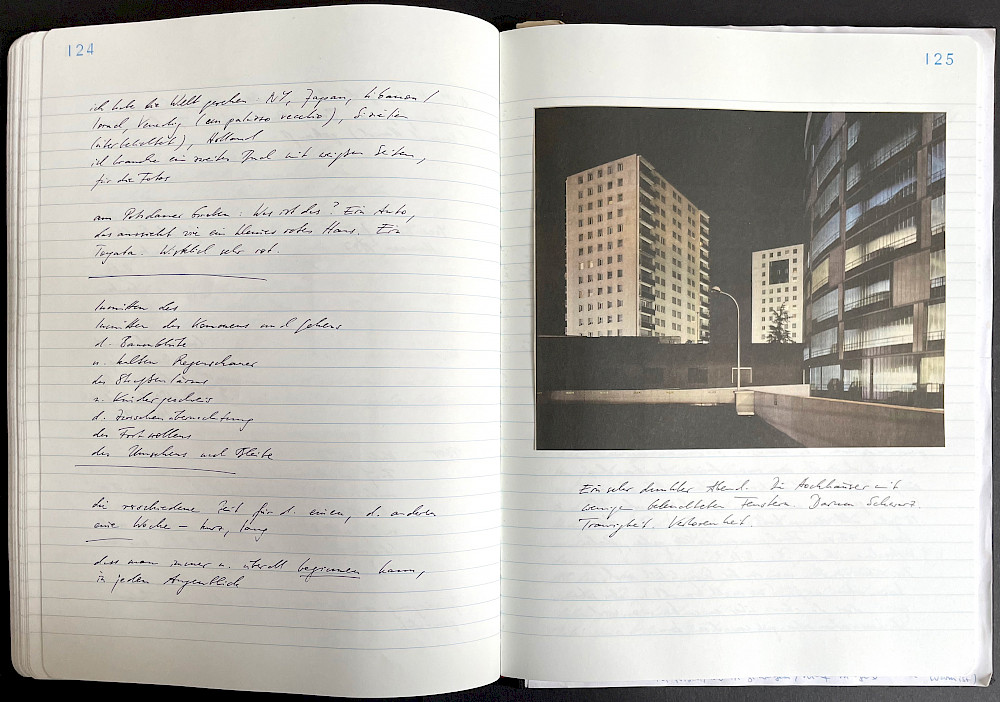 124
ich habe die Welt gesehen: NY, Japan, Libanon /
Israel, Venedig (ein palazzo vecchio), Sizilien
), Holland
ich brauche ein zweites Buch mit weißen Seiten,
für die Fotos
am Potsdamer : Was ist das? Ein Auto,
das aussieht wie ein kleines rotes Haus. Ein
Toyota. Wirklich sehr rot.
Inmitten des
Inmitten des Kommens und Gehens
d. Baumblüte
u. kalten Regenschauer
des Straßenlärms
u. Kindergeschreis
d. Zwischenübernachtung
des Fortwollens
des Umsehens und Bleibe
die verschiedene Zeit für d. einen, d. anderen
eine Woche – kurz, lang
dass man immer u. überall beginnen kann,
in jedem Augenblick
125
Ein sehr dunkler Abend. Die Hochhäuser mit
wenigen beleuchteten Fenstern. Darum Schwarz.
Traurigkeit. Verlorenheit.